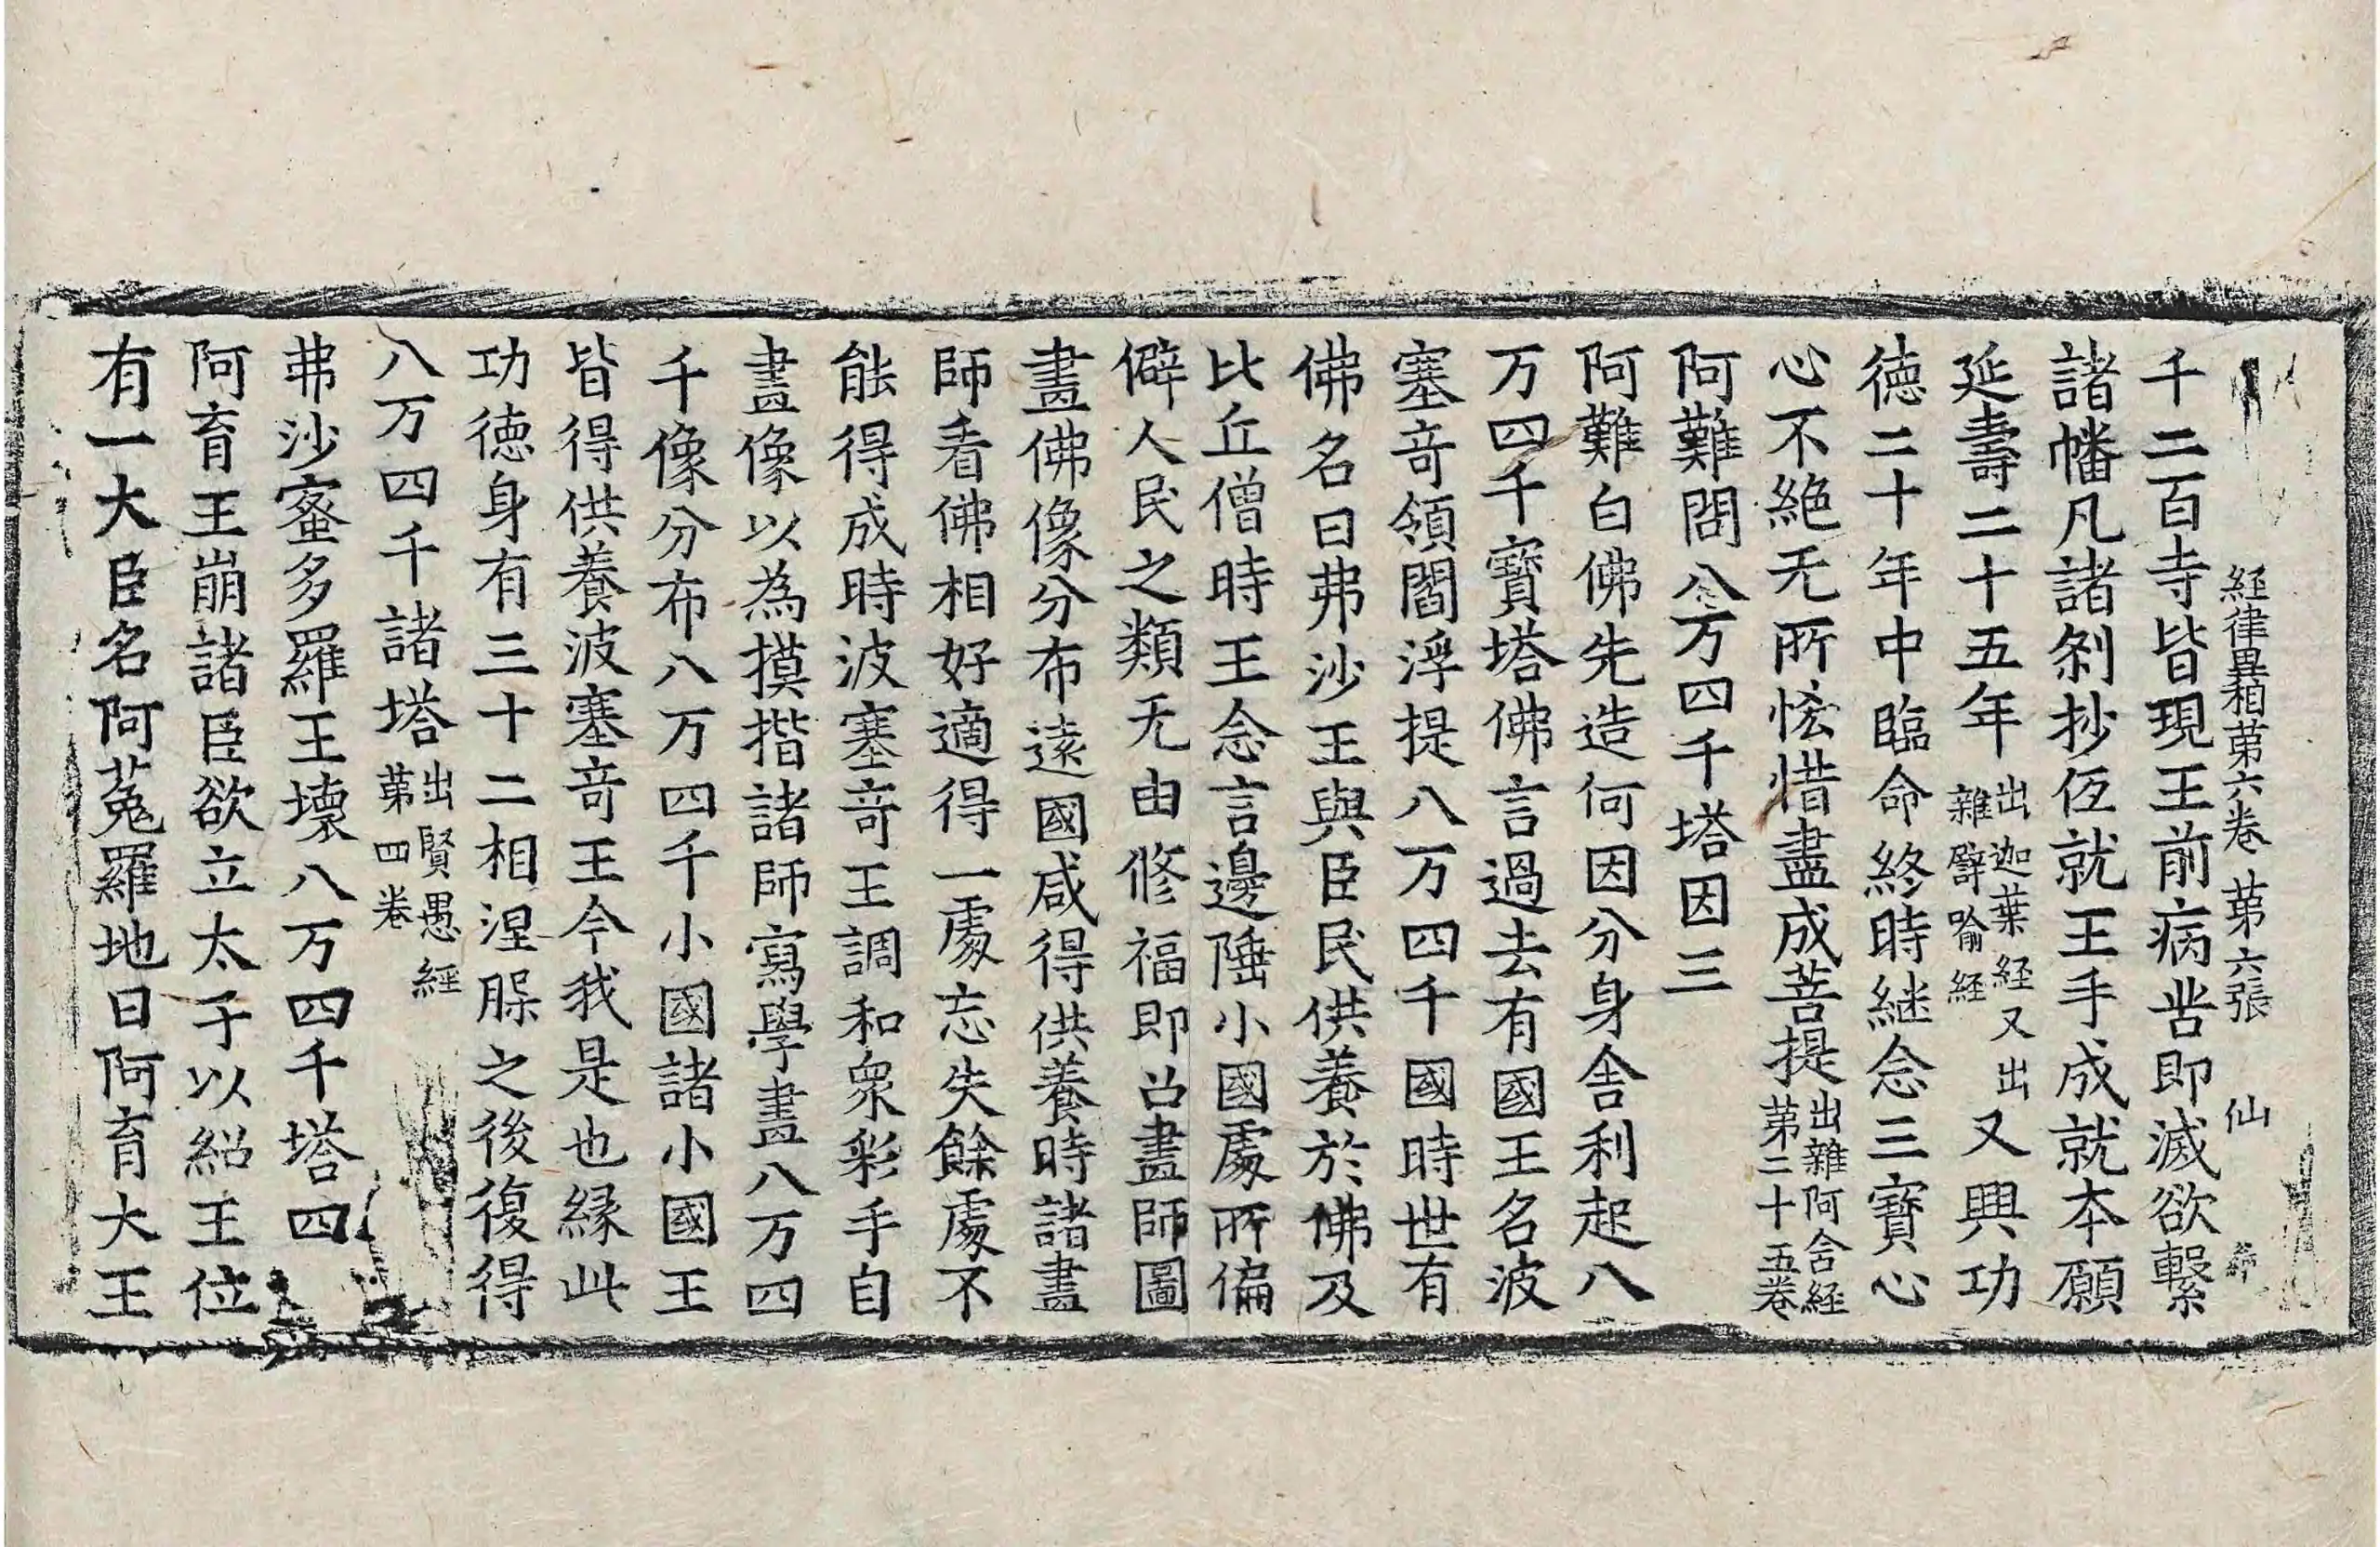 經律異相第六卷 第六張 仙
千二百寺皆現王前病苦即滅欲繫
諸幡凡諸剎抄伍就王手成就本願
延壽二十五年出迦葉經又出雜譬喻經又興功
德二十年中臨命終時継念三寶心
心不絕无所悋惜盡成菩提出雜阿含經第二十五卷
阿難問八万四千塔因三
阿難白佛先造何因分身舍利起八
万四千寶塔佛言過去有國王名波
塞竒領閻浮提八万四千國時世有
佛名曰弗沙王與臣民供養於佛及
比丘僧時王念言邊陲小國處所偏
僻人民之類无由修福即召畫師圖
畫佛像分布遠國咸得供養時諸畫
師看佛相好適得一處忘失餘處不
能得成時波塞竒王調和衆彩手自
畫像以為摸揩諸師寫學畫八万四
千像分布八万四千小國諸小國王
皆得供養波塞竒王今我是也緣此
功德身有三十二相涅脲之後復得
八万四千諸塔出賢愚經第四卷
弗沙蜜多羅王壞八万四千塔四
阿育王崩諸臣欲立太子以紹王位
有一大臣名阿菟羅地曰阿育大王